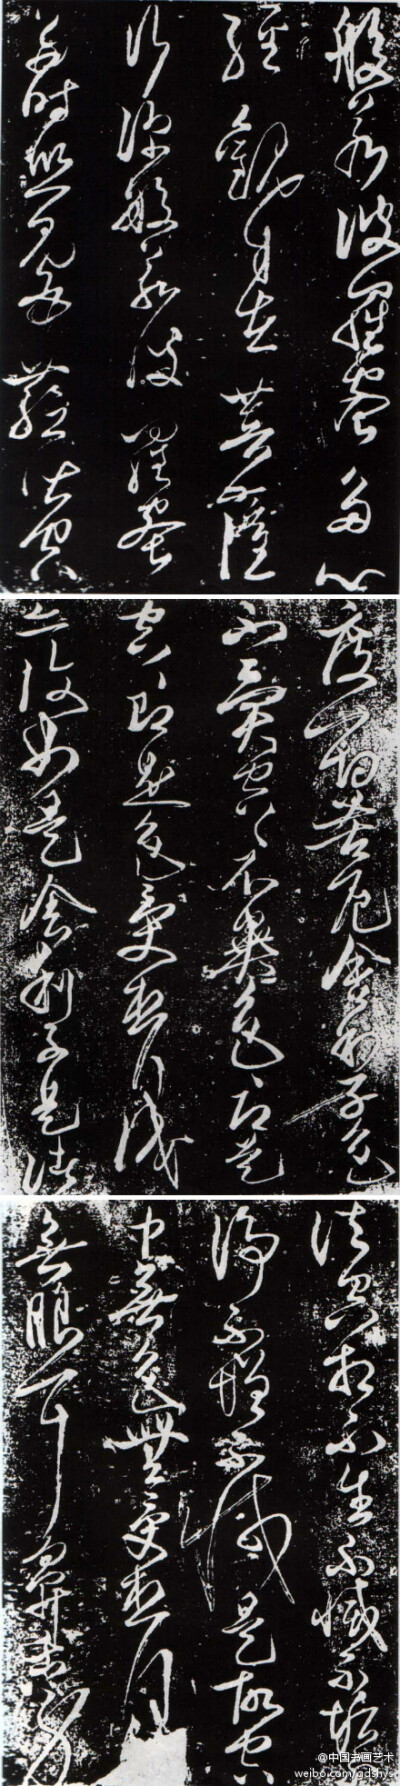 般若波羅蜜多心
經觀自在菩薩
行深般若波羅蜜
多時照見五蘊皆空
度一切苦厄舍利子色
不異空空不異色色即是
空空即是色受想行識
亦復如是舍利子是諸
法空相不生不滅不垢
淨不增不減是故空
中無色無受想行
無眼耳鼻舌身
@中国书画艺术
weibo.com/gdshys